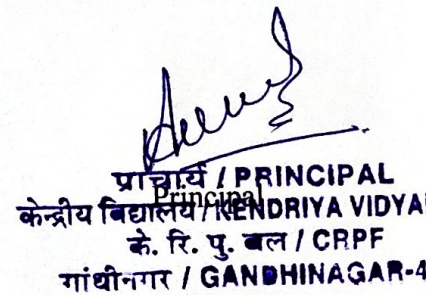 प्राचार्य / PRINCIPAL
Principal
केन्द्रीय विद्यालय / KENDRIYA VIDYA
के. रि. पु. बल / CRPF
गांधीनगर / GANDHINAGAR-4